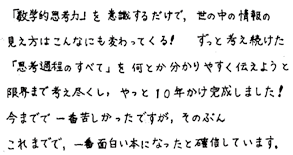 「数学的思考力」を意識するだけで、世の中の情報の
見え方はこんなにも変わってくる! ずっと考え続けた
「思考過程のすべて」を何とか分かりやすく伝えようと
限界まで考え尽くし、やっと10年かけ完成しました!
今までで一番苦しかったですが、そのぶん
これまでで、一番面白い本になったと確信しています。